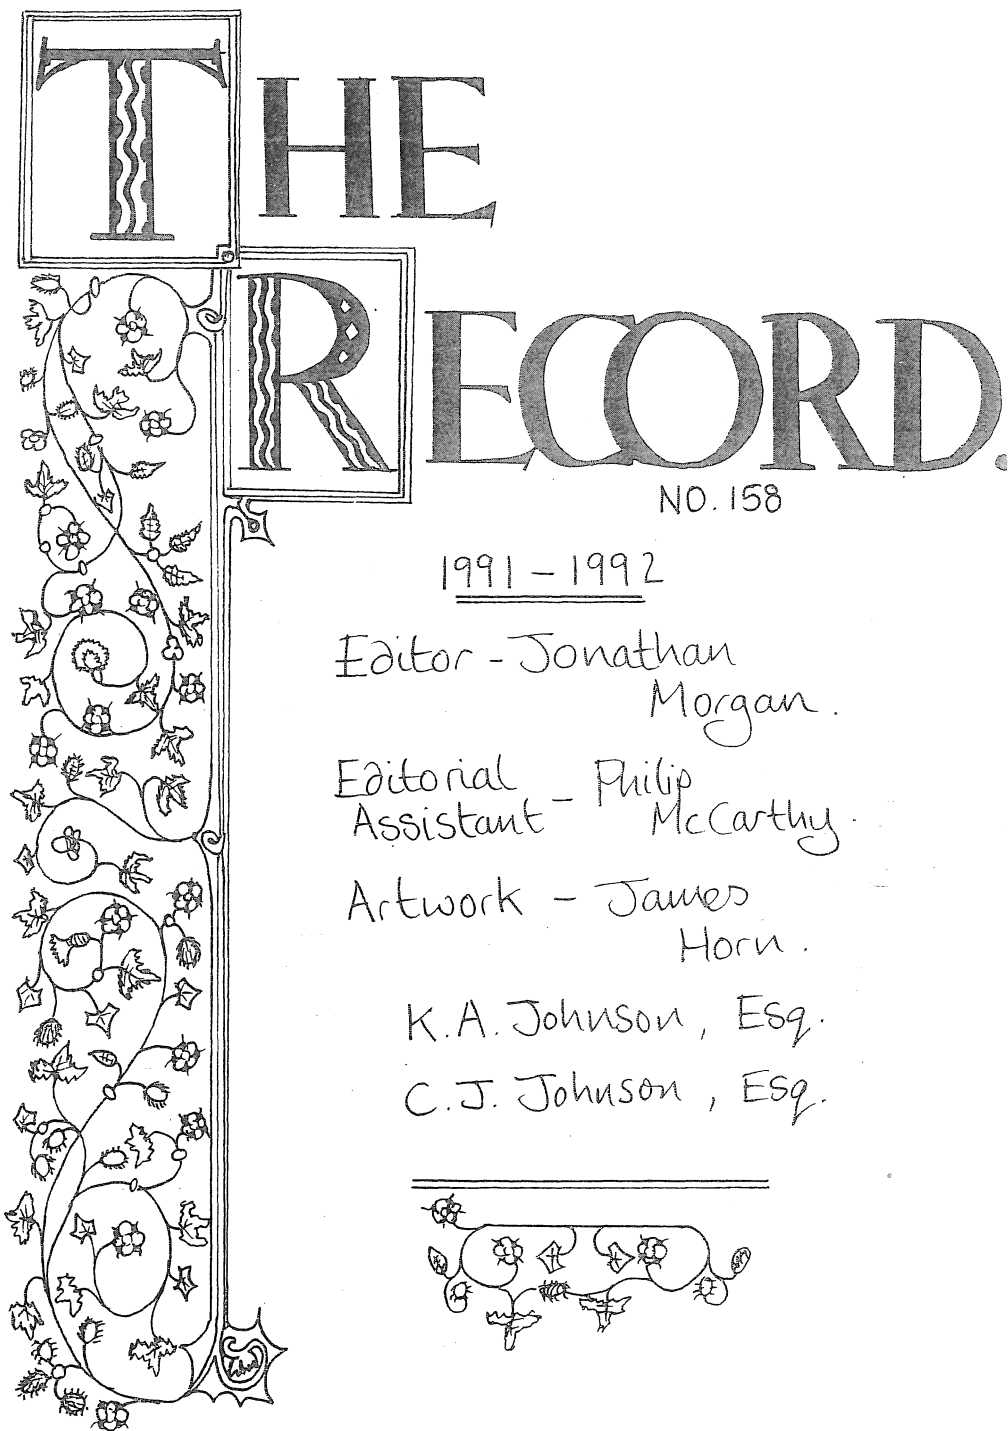 THE
RECORD.
NO. 158
1991 – 1992
Editor – Jonathan
Morgan.
Editorial – Philip
Assistant McCarthy.
Artwork – James
Horn.
K.A. Johnson, Esq.
C.J. Johnson, Esq.